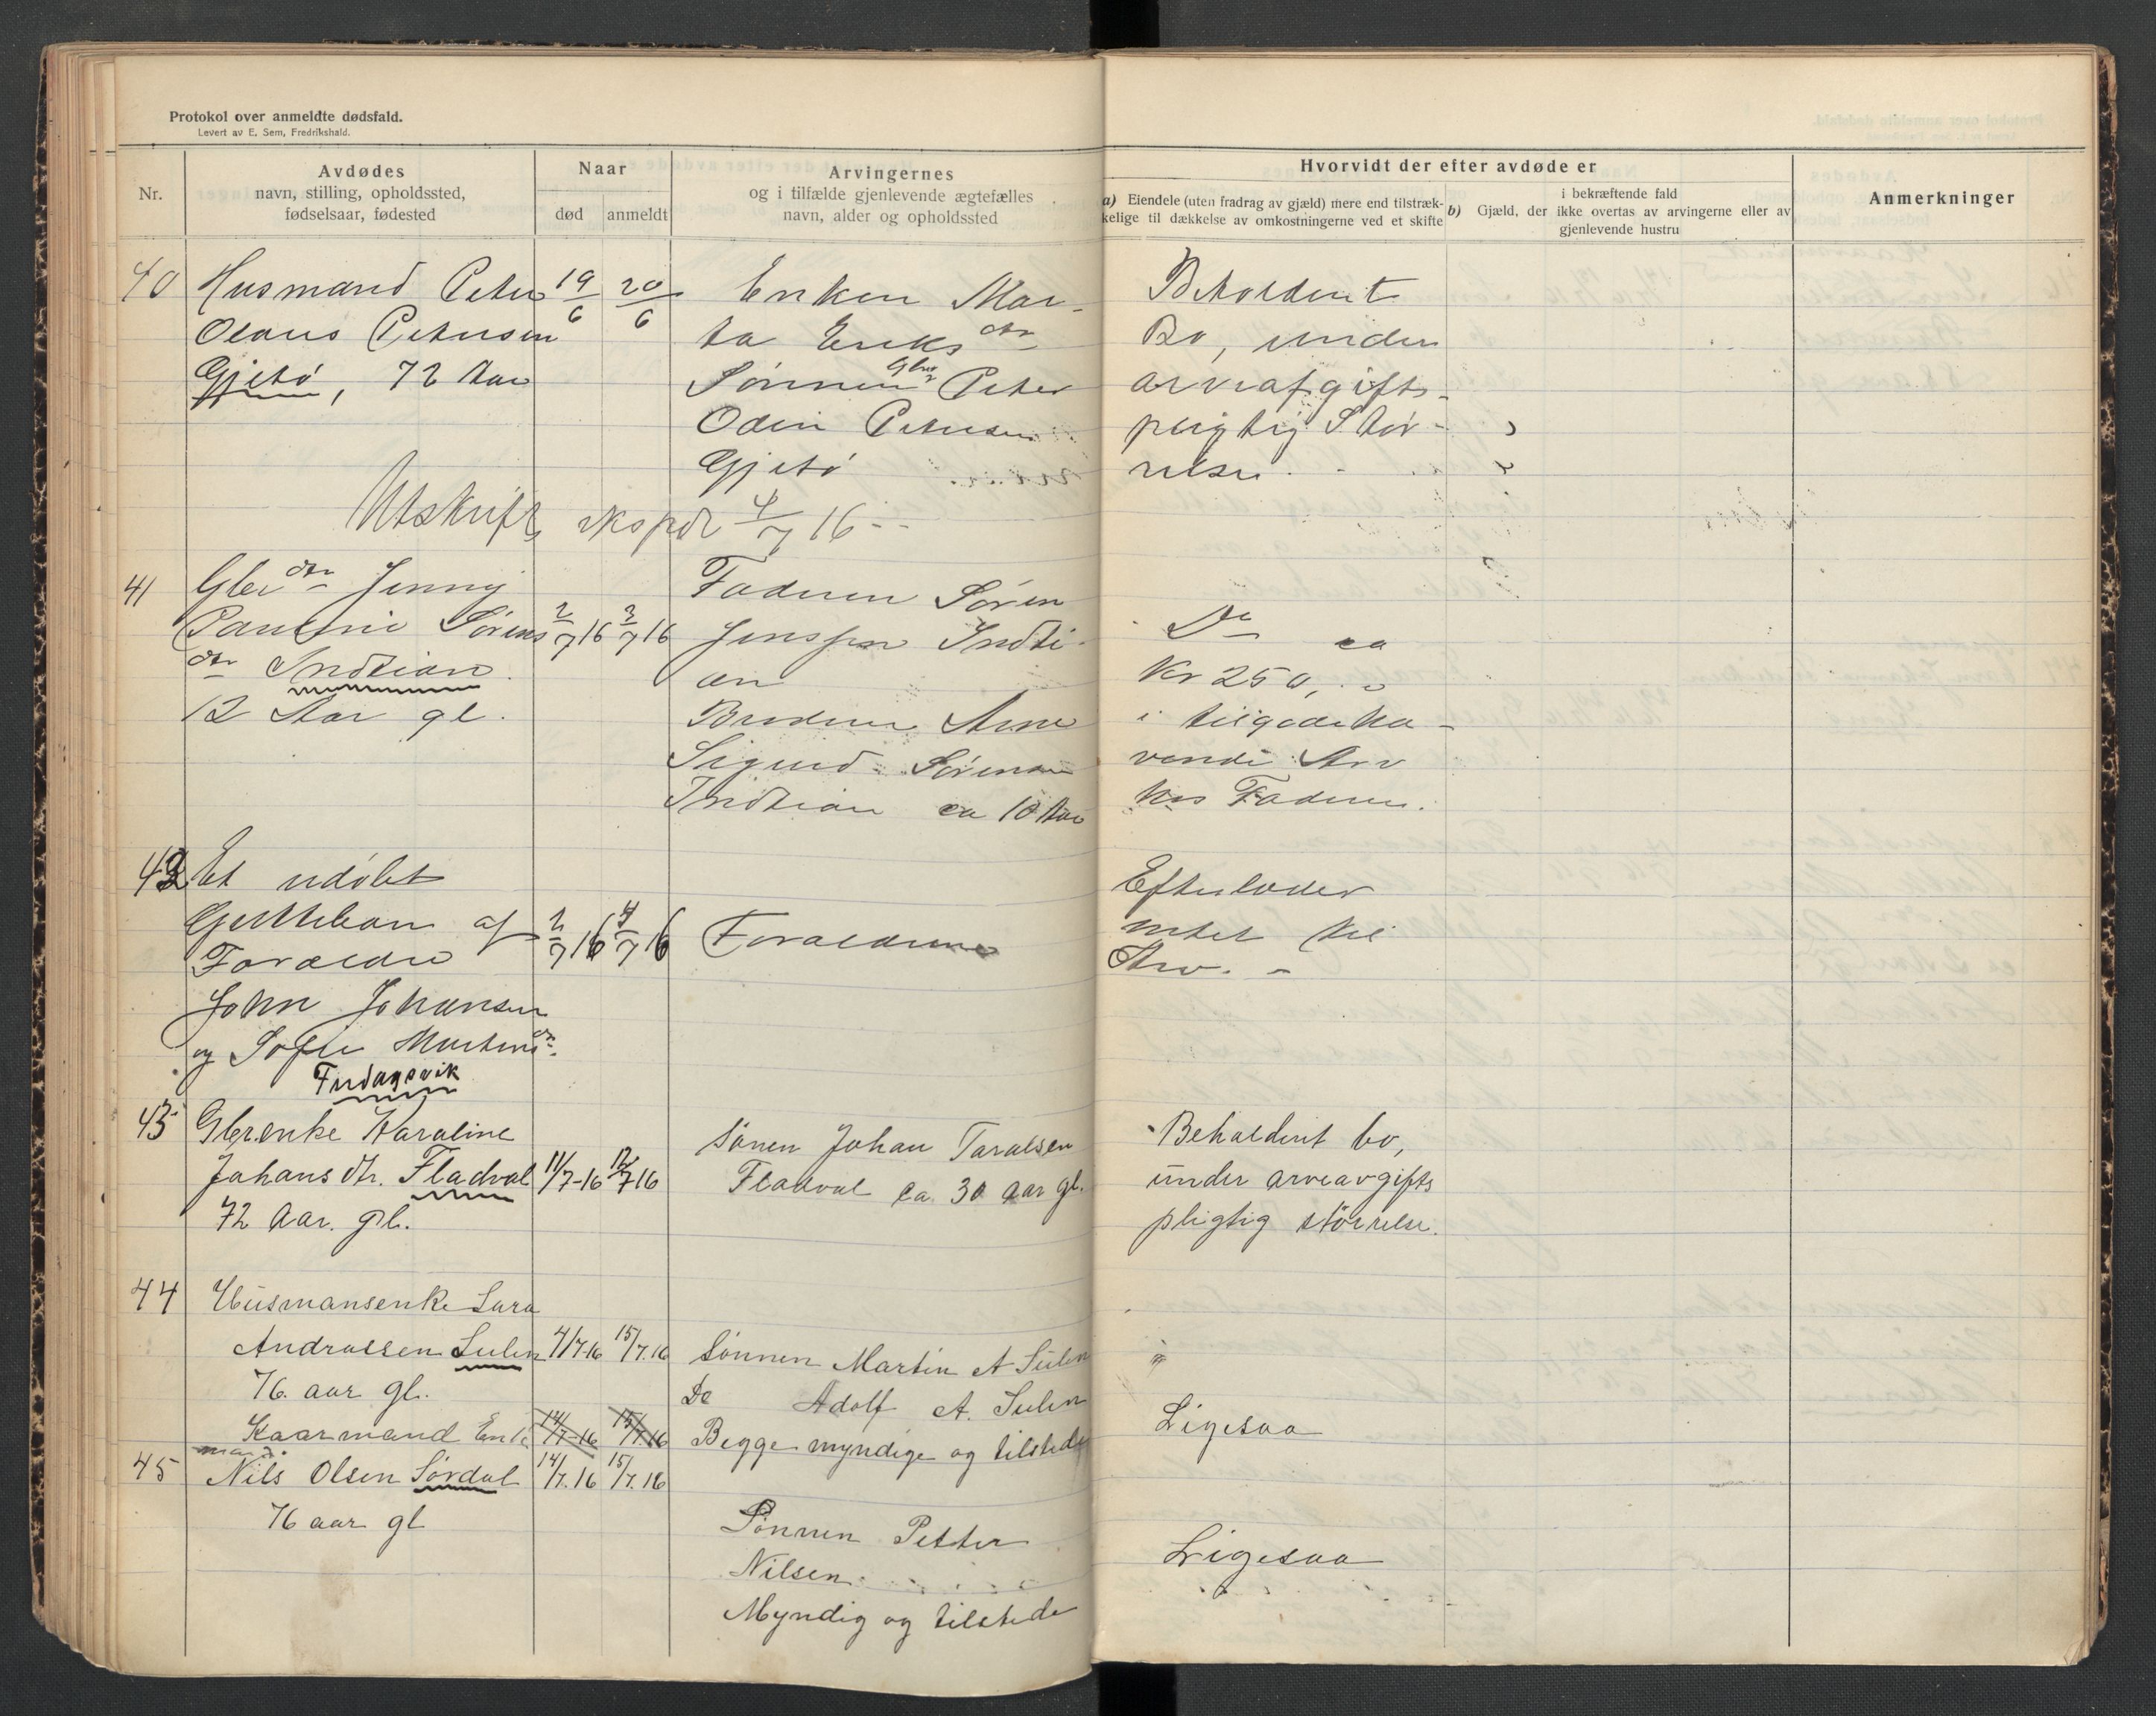 Protokol over anmeldte dødsfald.
Levert av E. Sem, Fredrikshald.
Nr.
Avdødes
navn, stilling, opholdssted,
fødselsaar, fødested
Naar
død
anmeldt
Arvingernes
og i tilfælde gjenlevende ægtefælles
navn, alder og opholdssted
Hvorvidt der efter avdøde er
a) Eiendele (uten fradrag av gjæld) mere end tilstræk-
kelige til dækkelse av omkostningerne ved et skifte
b) Gjæld, der
i bekræftende fald
ikke overtas av arvingerne eller av
gjenlevende hustru
Anmerkninger
40
Husmand Peter
Olaus Petersen
Gjetø, 72 Aar
19/6
20/6
Enken Mar-
ta Eriksdtr
Sønnen Gbr Peter
Odin Petersen
Gjetø
Beholdent
Bo, under
arveafgifts-
pligtig Stør-
relse.
Utskrift ekspdr 4/7 16 --
41
Gbr dtr Jenny
Pauline Sørens
dtr Indtian
12 Aar gl.
2/7 16
3/7 16
Faderen Søren
Jenssen Indti-
an
Broderen Arne
Sigurd Sørensen
Indtian ca 10 Aar
Do ca
Kr 250,-
i tilgodeha-
vende Arv
hos Faderen.
42
Et udøbt
Guttebarn af
Forældre
John Johansen
og Sofie Martensdtr.
2/7 16
4/7 16
Forældrene
Efterlader
intet til
Arv. -
43
Gbr.enke Karoline
Johansdtr. Fladval
72 Aar. gl.
11/7-16
12/7 16
Sønen Johan Taralsen
Fladval ca. 30 aar gl.
Beholdent bo,
under arveavgifts
pligtig størrelse.
44
Husmansenke Sara
Andreassen Sulen
76 aar gl.
4/7-16
15/7.16
Sønnen Martin A Sulen
Do Adolf A. Sulen
Begge myndige og tilstede
Ligesaa
Kaarmand Enke
14/7-16
15/7.16
mand.
45
Nils Olsen Sørdal
76 aar gl
14/7.16
15/7.16
Sønnen Petter
Nilsen
Myndig og tilstede
Ligesaa